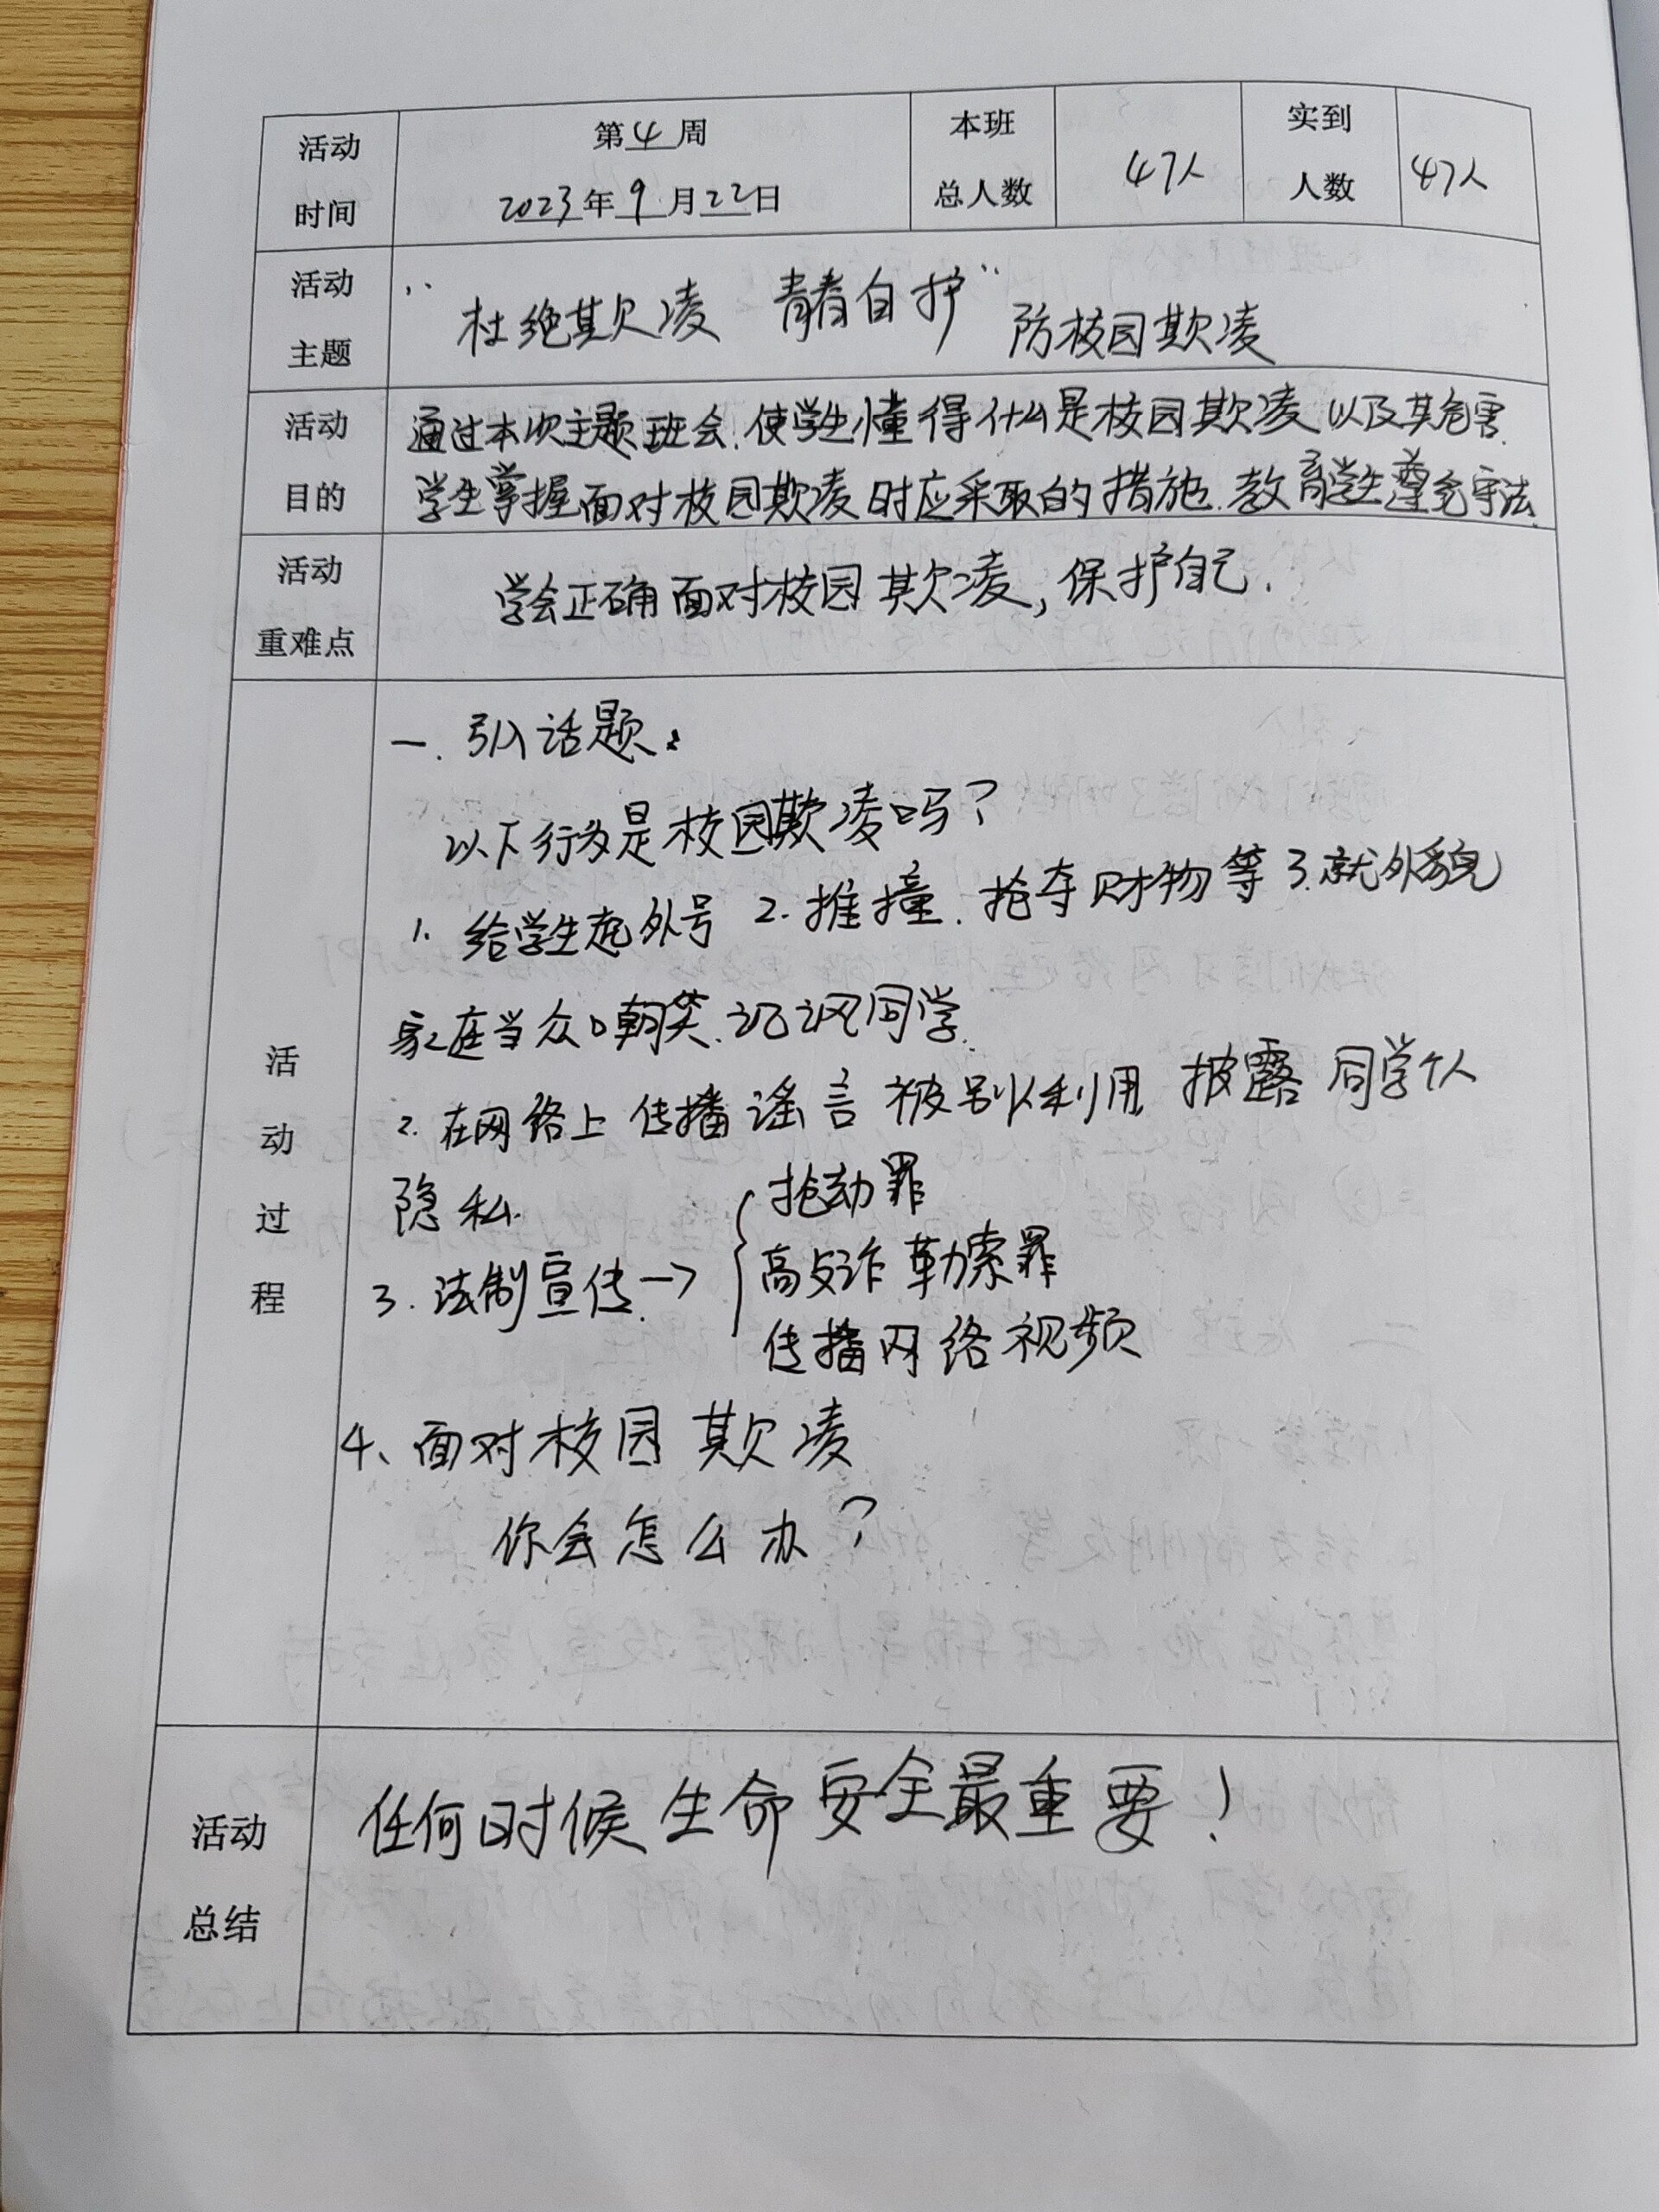 活动时间 第4周 2023年9月22日 本班总人数 47人 实到人数 47人
活动主题 “杜绝欺凌 青春自护” 防校园欺凌
活动目的 通过本次主题班会.使学生懂得什么是校园欺凌以及其危害.
学生掌握面对校园欺凌时应采取的措施.教育学生遵纪守法.
活动重难点 学会正确面对校园欺凌,保护自己.
活动过程
一.引入话题:
以下行为是校园欺凌吗?
1.给学生起外号 2.推撞.抢夺财物等 3.就外貌
家庭当众嘲笑.讥讽同学.
2.在网络上传播谣言被别人利用 披露同学个人
隐私.
3.法制宣传→
抢劫罪
敲诈勒索罪
传播网络视频
4、面对校园欺凌
你会怎么办?
活动总结 任何时候生命安全最重要!